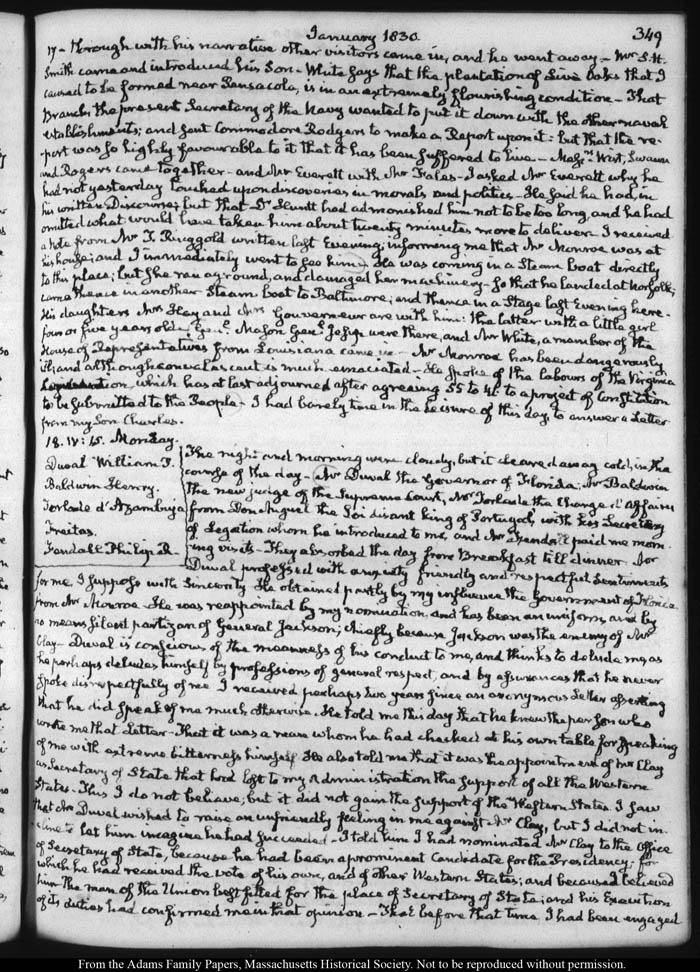 January 1830.
349
17 - through with his narrative other visitors came in, and he went away - Mr S. H.
Smith came and introduced his Son - White says that the plantation of Live Oaks that I
caused to be formed near Pensacola, is in an extremely flourishing condition - That
Branch the present Secretary of the Navy wanted to put it down with the other naval
establishments; and sent Commodore Rodgers to make a Report upon it: but that the re-
-port was so highly favourable to it that it has been suffered to live - Messrs West, Swann
and Rogers came together - and Mr Everett with Mr Fales - I asked Mr Everett why he
had not yesterday touched upon discoveries in morals and politics - He said he had, in
his written Discourse; but that Dr had admonished him not to be too long, and he had
omitted what would have taken him about twenty minutes more to deliver. I received
a Note from Mr T. Ringgold written last Evening, informing me that Mr Monroe was at
his house; and I immediately went to see him. He was coming in a Steam boat directly
to this place; but she ran aground, and damaged her machinery - So that he landed at Norfolk;
came thence in another Steam boat to Baltimore; and thence in a Stage last Evening here.
His daughters Mrs Hay and Mrs Gouverneur are with him: the latter with a little girl
four or five years old. Genl. Mason Genl. Jesup were there, and Mr White, a member of the
House of Representatives from Louisiana came in - Mr Monroe has been dangerously
ill, and although convalescent is much emaciated - He spoke of the labours of the Virginia
Convention, which has at last adjourned after agreeing 55 to 40 to a project of Constitution
to be submitted to the People - I had barely time in the leisure of this day to answer a Letter
from my Son Charles.
18. IV: 45. Monday.
Duval William P.
Baldwin Henry.
Torlade d'Azambuja
Freitas.
Fendall Philip R
The night and morning were cloudy, but it cleared away cold, in the
course of the day - Mr Duval the Governor of Florida, Mr Baldwin
the new judge of the Supreme Court, Mr Torlade the Chargé d'Affaires
from Don Miguel the Soi disant king of Portugal, with his Secretary
of Legation whom he introduced to me, and Mr Fendall paid me morn-
-ing visits - They absorbed the day from Breakfast till dinner. Mr
Duval professed with anxiety friendly and respectful Sentiments
for me, I suppose with sincerity. He obtained partly by my influence the Government of Florida
from Mr Monroe. He was reappointed by my nomination, and has been an uniform, and by
no means silent partizan of General Jackson; chiefly because Jackson was the enemy of Mr
Clay - Duval is conscious of the meanness of his conduct to me, and thinks to delude me, as
he perhaps deludes himself by professions of general respect, and by assurances that he never
spoke disrespectfully of me. I received perhaps two years since an anonymous Letter asserting
that he did speak of me much otherwise. He told me this day that he knew the person who
wrote me that Letter - That it was a man whom he had checked at his own table for speaking
of me with extreme bitterness himself. He also told me that it was the appointment of Mr Clay
as Secretary of State that had lost to my Administration the support of all the Western
States - This I do not believe; but it did not gain the support of the Western States. I saw
that Mr Duval wished to raise an unfriendly feeling in me against Mr Clay, but I did not in-
-cline to let him imagine he had succeeded - I told him I had nominated Mr Clay to the Office
of Secretary of State, because he had been a prominent Candidate for the Presidency; for
which he had received the vote of his own, and of other Western States; and because I believed
him the man of the Union best fitted for the place of Secretary of State; and his Execution
of its duties had confirmed me in that opinion - That before that time I had been engaged
From the Adams Family Papers, Massachusetts Historical Society. Not to be reproduced without permission.